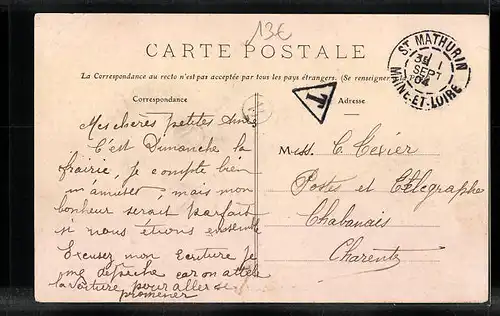 13€
CARTE POSTALE
La Correspondance au recto n'est pas acceptée par tous les pays étrangers. (Se renseigner
ST MATHURIN
SEPT
04
MAINE-ET-LOIRE
T
Correspondance
Adresse
Mes chères petites Amies
C'est Dimanche la
frairie, je compte bien
m'amuser, mais mon
bonheur serait parfait
si nous étions ensemble
Excusez mon Ecriture je
me dépêche car on attele
la voiture pour aller se
promener
Mess. C. Texier
Postes et Télégraphe
Chabanais
Charente